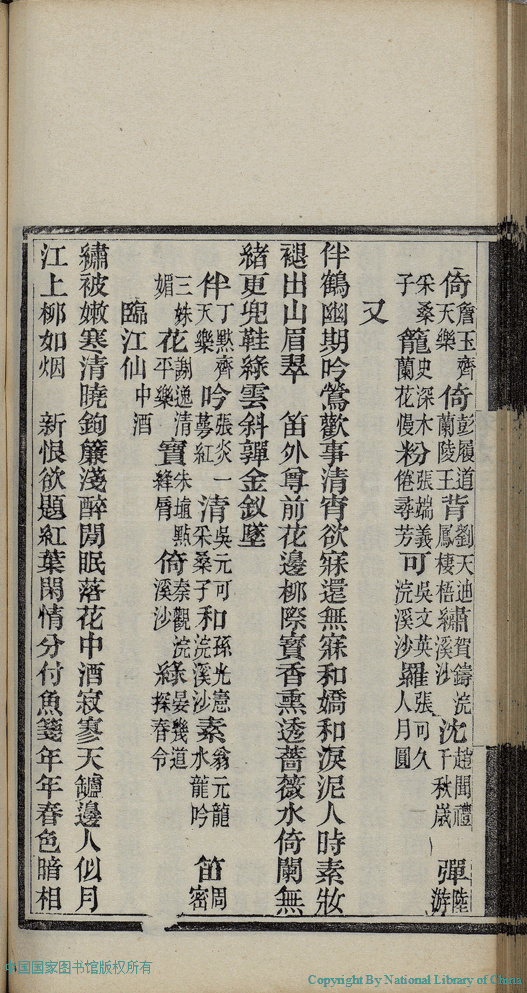 倚詹玉齊天樂 倚彭履道蘭陵王 背劉天迪鳳棲梧 繡賀鑄浣溪沙 沈趙聞禮千秋歲 彈陸游
采桑子 籠史深木蘭花慢 粉張端義倦尋芳 可吳文英浣溪沙 羅張可久人月圓
又
伴鶴幽期吟鶯歡事清宵欲寐還無寐和嬌和淚泥人時素妝
褪出山眉翠　笛外尊前花邊柳際寶香熏透薔薇水倚闌無
緒更兜鞋綠雲斜嚲金釵墜
伴丁默齊天樂 吟張炎一萼紅 清吳元可采桑子 和孫光憲浣溪沙 素翁元龍水龍吟 笛周密
三姝媚 花謝逸清平樂 寶朱埴點絳脣 倚秦觀浣溪沙 綠晏幾道探春令
臨江仙 中酒
繡被嫩寒清曉鉤簾淺醉閒眠落花中酒寂寥天罏邊人似月
江上柳如烟　新恨欲題紅葉閑情分付魚箋年年春色暗相
中国国家图书馆版权所有
Copyright By National Library of China